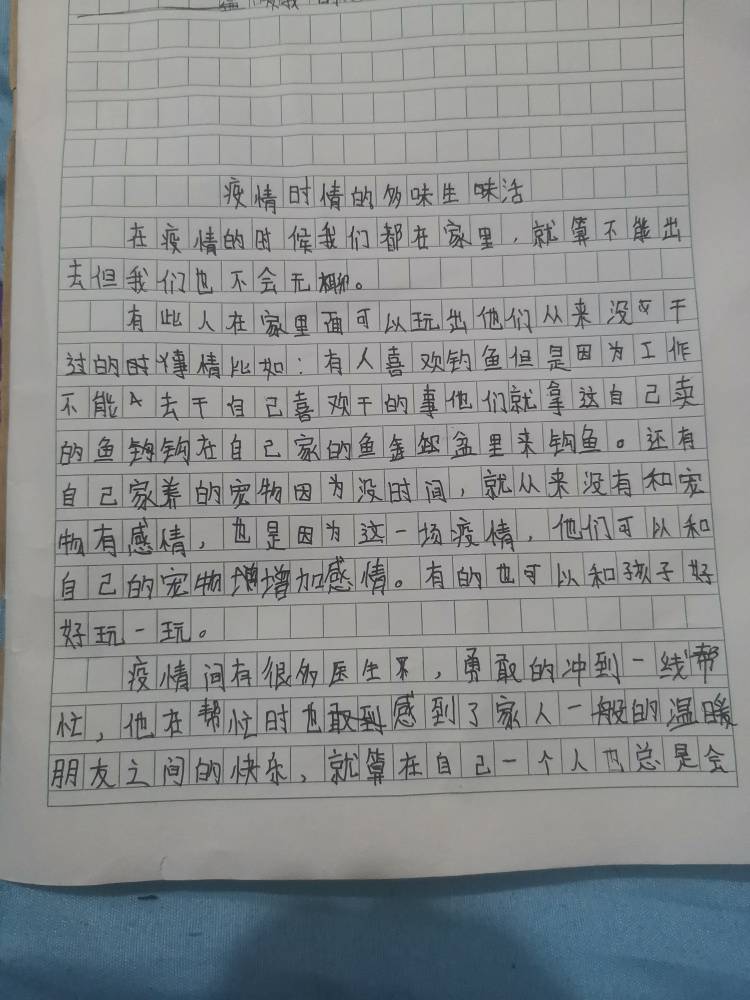 疫情时情的多味生味活
在疫情的时候我们都在家里，就算不能出
去但我们也不会无聊。
有些人在家里面可以玩出他们从来没干
过的时事情比如：有人喜欢钓鱼但是因为工作
不能去干自己喜欢干的事他们就拿这自己卖
的鱼钩钩在自己家的鱼盆里来钩鱼。还有
自己家养的宠物因为没时间，就从来没有和宠
物有感情，也是因为这一场疫情，他们可以和
自己的宠物增加感情。有的也可以和孩子好
好玩一玩。
疫情间有很多医生不，勇敢的冲到一线帮
忙，他在帮忙时也感到了家人一般的温暖
朋友之间的快乐，就算在自己一个人也总是会